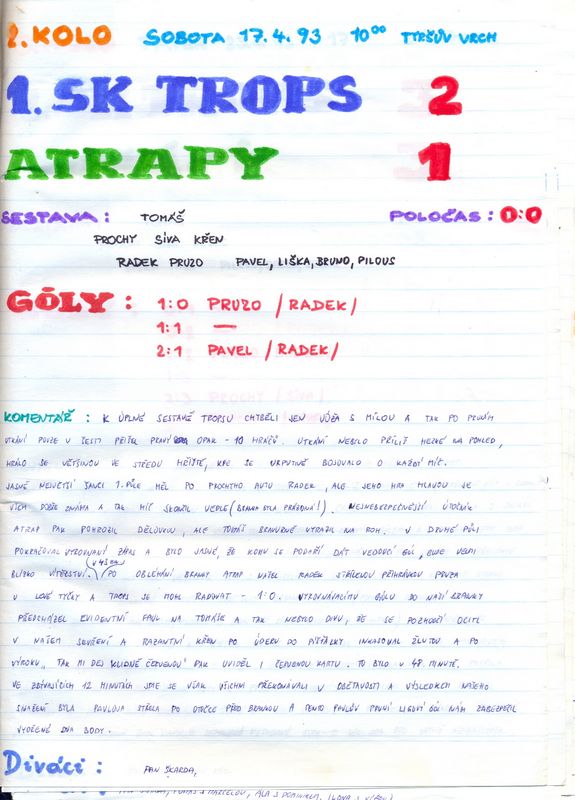 2. KOLO SOBOTA 17.4.93 10⁰⁰ TYRŠŮV VRCH
1. SK TROPS 2
ATRAPY 1
SESTAVA : TOMÁŠ POLOČAS : 0:0
PROCHY SÍVA KŘEN
RADEK PRUZO PAVEL, LIŠKA, BRUNO, PILOUS
GÓLY : 1:0 PRUZO /RADEK/
1:1 —
2:1 PAVEL /RADEK/
KOMENTÁŘ : K ÚPLNÉ SESTAVĚ TROPSU CHYBĚLI JEN S MÍLOU A TAK PO PRVNÍM
UTKÁNÍ POUZE V ŠESTI PŘIŠEL PRAVÝ OPAK - 10 HRÁČŮ. UTKÁNÍ NEBYLO PŘÍLIŠ HEZKÉ NA POHLED,
HRÁLO SE VĚTŠINOU VE STŘEDU HŘIŠTĚ, KDE SE URPUTNĚ BOJOVALO O KAŽDÝ MÍČ.
JASNĚ NEJVĚTŠÍ ŠANCI 1. PŮLE MĚL PO PROCHYHO AUTU RADEK, ALE JEHO HRA HLAVOU JE
VŠEM DOBŘE ZNÁMA A TAK MÍČ SKONČIL VEDLE (BRANKA BYLA PRÁZDNÁ!). NEJNEBEZPEČNĚJŠÍ ÚTOČNÍK
ATRAP PAK POHROZIL DĚLOVKOU, ALE TOMÁŠ BRAVURNĚ VYRAZIL NA ROH. V DRUHÉ PŮLI
POKRAČOVAL VYROVNANÝ ZÁPAS A BYLO JASNÉ, ŽE KOMU SE PODAŘÍ DÁT VEDOUCÍ GÓL, BUDE VELMI
BLÍZKO VÍTĚZSTVÍ. (V 43. MIN) PO OBLÉHÁNÍ BRANKY ATRAP NAŠEL RADEK STŘELOU PŘIHRÁVKOU PRUZA
U LEVÉ TYČKY A TROPS SE MOHL RADOVAT - 1:0. VYROVNÁVACÍMU GÓLU DO NAŠÍ BRANKY
PŘEDCHÁZEL EVIDENTNÍ FAUL NA TOMÁŠE A TAK NEBYLO DIVU, ŽE SE POZHORŠÍ OCITL
V NAŠEM SKUŘENÍ A RAZANTNÍ KŘEN PO ÚDERU DO PÍŠŤALKY INKASOVAL ŽLUTOU A PO
VÝROKU „TAK MI DEJ KLIDNĚ ČERVENOU" PAK UVIDĚL I ČERVENOU KARTU. TO BYLO V 48. MINUTĚ.
VE ZBÝVAJÍCÍCH 12 MINUTÁCH JSME SE VŠAK VŠICHNI PŘEKONÁVALI V OBĚTAVOSTI A VÝSLEDKEM NAŠEHO
SNAŽENÍ BYLA PAVLOVA STŘELA PO OTOČCE PŘED BRANKOU A TENTO PAVLŮV PRVNÍ LIGOVÝ GÓL NÁM ZABEZPEČIL
VYDŘENÉ DVA BODY.
Diváci : PAN ŠKARDA,
S MARCELOU, ALA S DOMINIKEM,